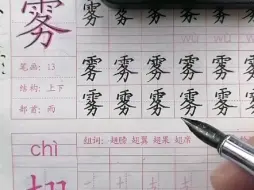 雾 雾 雾 雾 雾 雾 雾
wu wu
笔画：13
结构：上下
部首：雨
雾 雾 雾 雾 雾 雾
chì
组词：翅膀 翅翼 翅果
翅